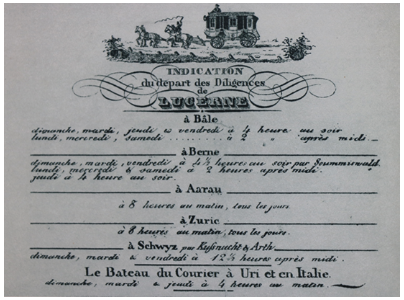 INDICATION
du départ des Diligences
de
LUCERNE
à Bâle
dimanche, mardi, jeudi & vendredi à 4 heure au soir
lundi, mercredi, samedi .......... à 2 " après midi
à Berne
dimanche, mardi, vendredi à 4½ heures au soir par Summiswald.
lundi, mercredi & samedi à 2 heures après midi.
jeudi à 4 heure au soir.
à Aarau
à 8 heures au matin, tous les jours
à Zuric
à 8 heures au matin, tous les jours.
à Schwyz par Kusnacht & Arth
dimanche, mardi & vendredi à 12¾ heures après midi.
Le Bateau du Courier à Uri et en Italie.
dimanche, mardi & jeudi à 4 heures au matin.